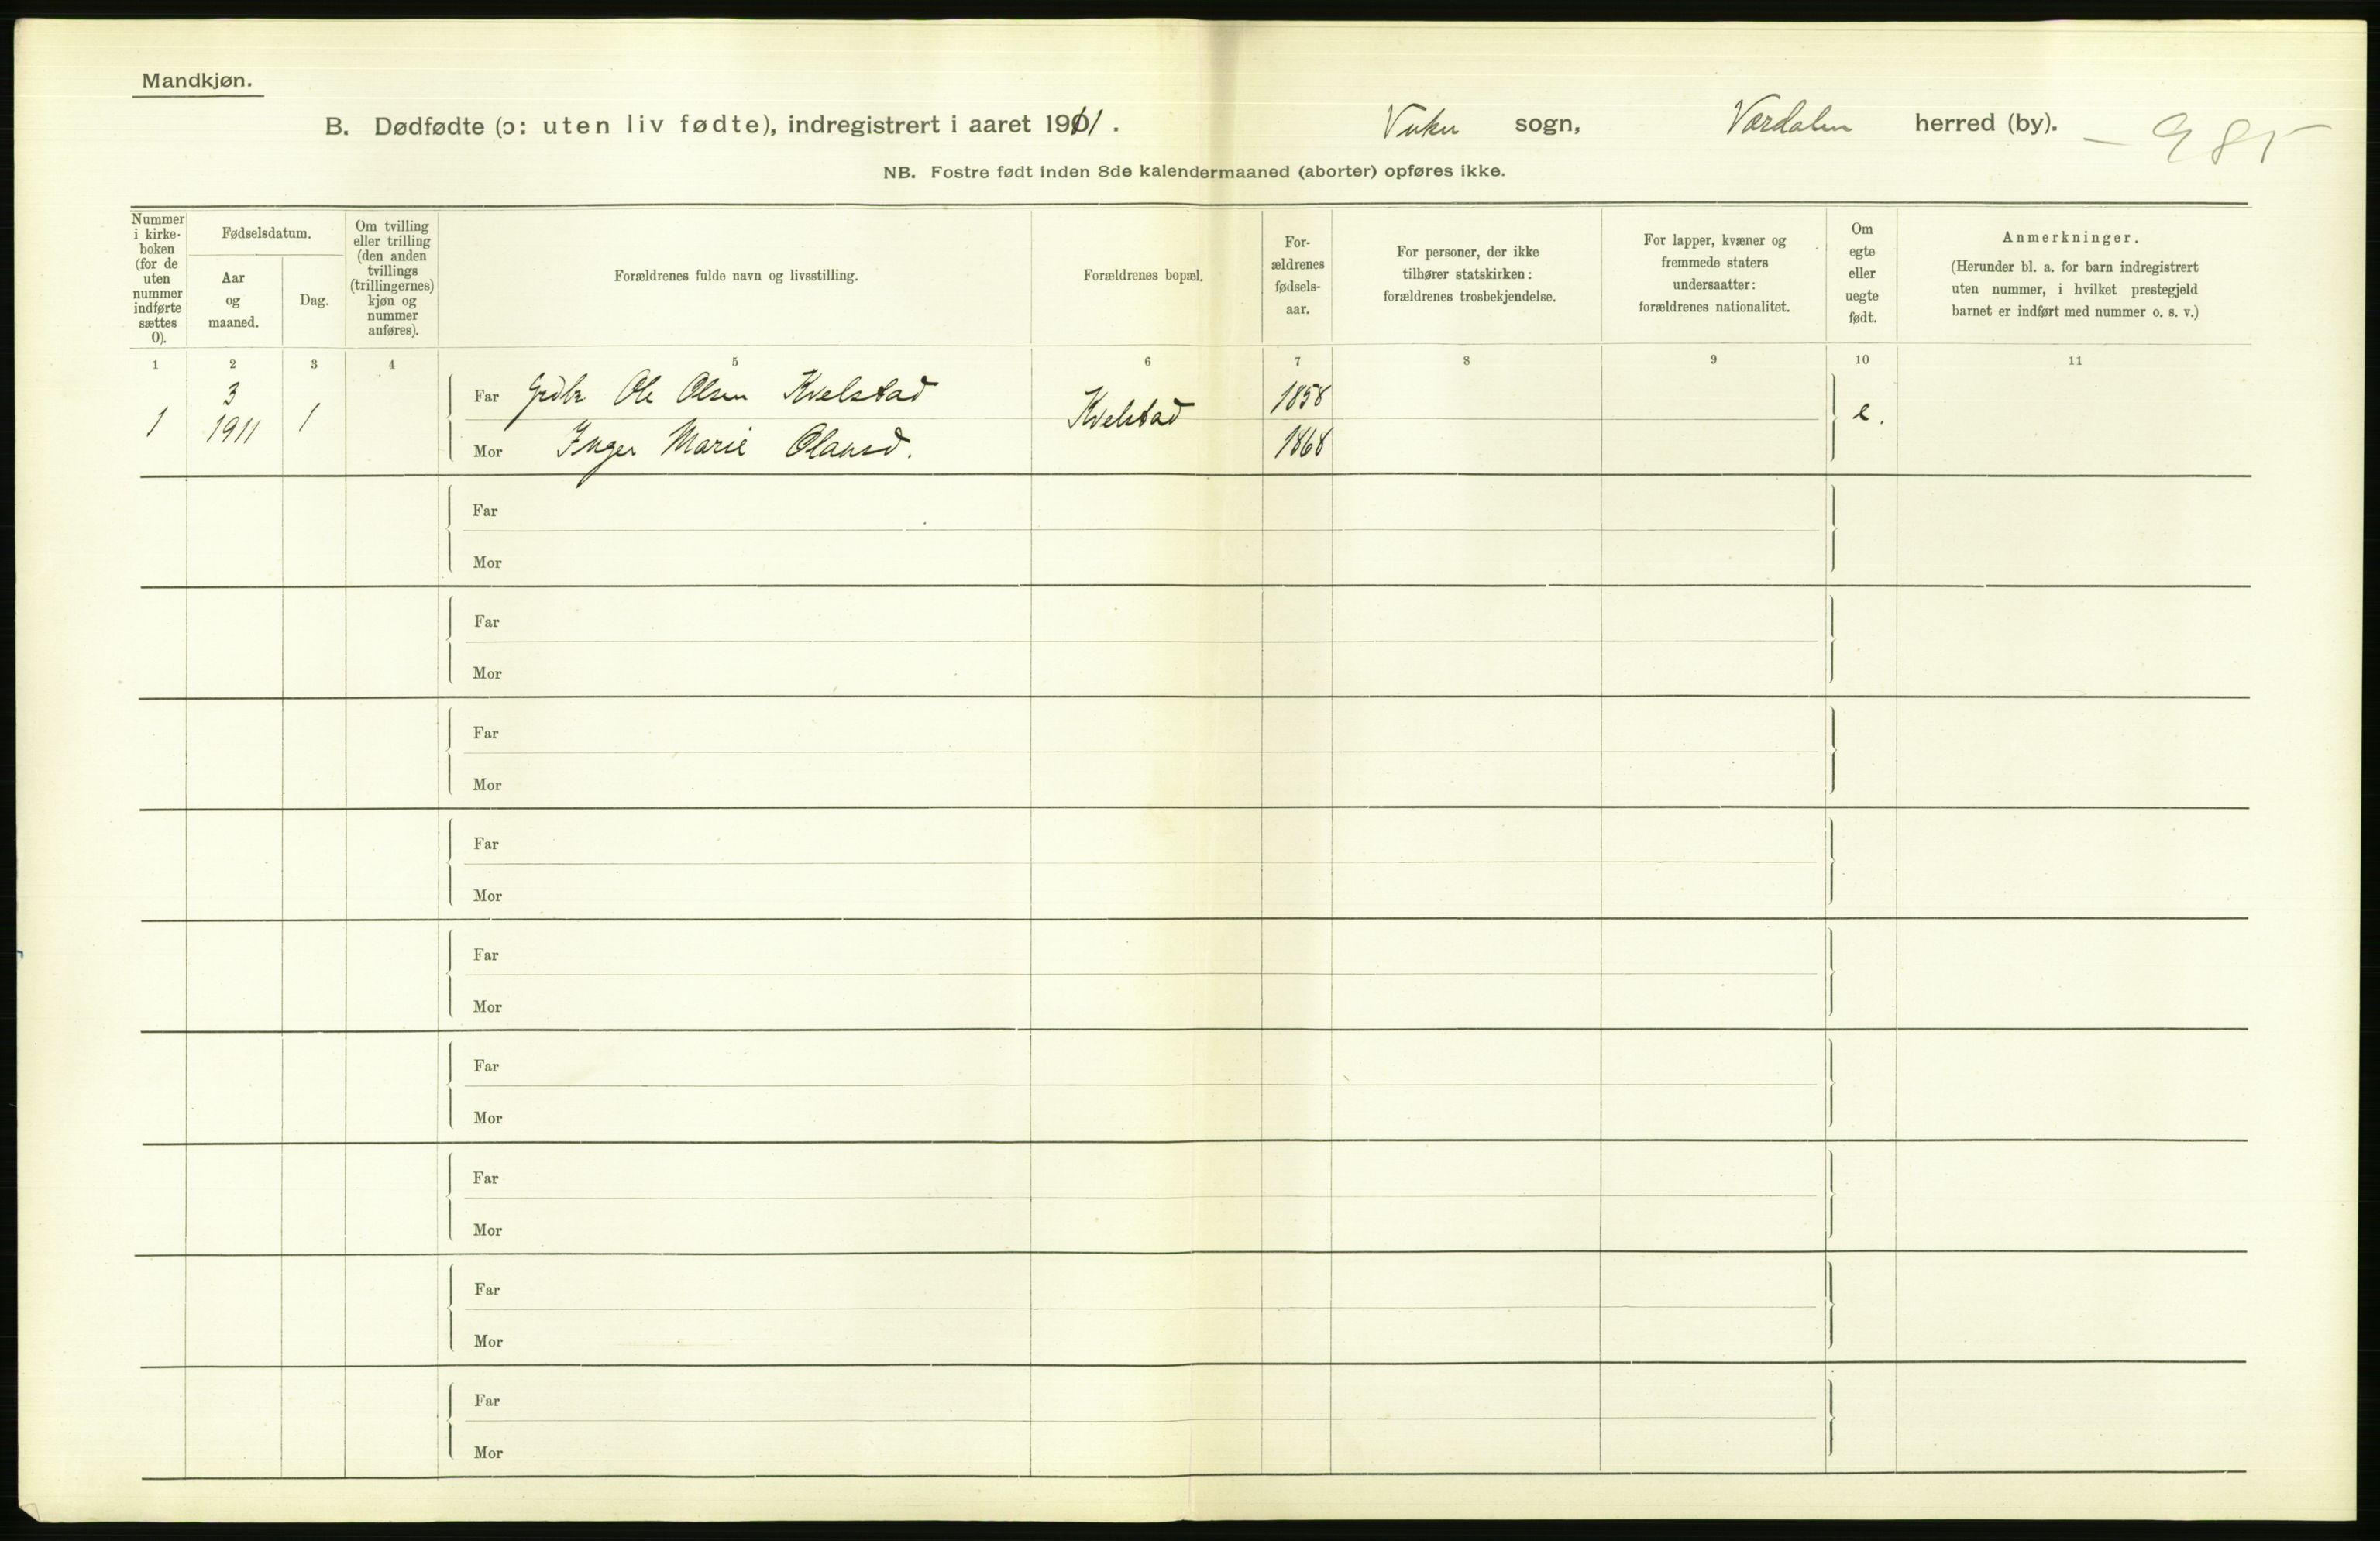 Mandkjøn.
B. Dødfødte (ɔ: uten liv fødte), indregistrert i aaret 1911. Vuku sogn, Værdalen herred (by). – 985
NB. Fostre født inden 8de kalendermaaned (aborter) opføres ikke.
Nummer i kirke-boken (for de uten nummer indførte sættes 0).
Fødselsdatum.
Aar og maaned.
Dag.
Om tvilling eller trilling (den anden tvillings (trillingernes) kjøn og nummer anføres).
Forældrenes fulde navn og livsstilling.
Forældrenes bopæl.
For-ældrenes fødsels-aar.
For personer, der ikke tilhører statskirken: forældrenes trosbekjendelse.
For lapper, kvæner og fremmede staters undersaatter: forældrenes nationalitet.
Om egte eller uegte født.
Anmerkninger.
(Herunder bl. a. for barn indregistrert uten nummer, i hvilket prestegjeld barnet er indført med nummer o. s. v.)
1 2 3 4 5 6 7 8 9 10 11
1 3 1911 1
Far Ole Olsen Kvelstad Kvelstad 1858 e.
Mor Inger Marie Olausd. 1868
Far
Mor
Far
Mor
Far
Mor
Far
Mor
Far
Mor
Far
Mor
Far
Mor
Far
Mor
Far
Mor